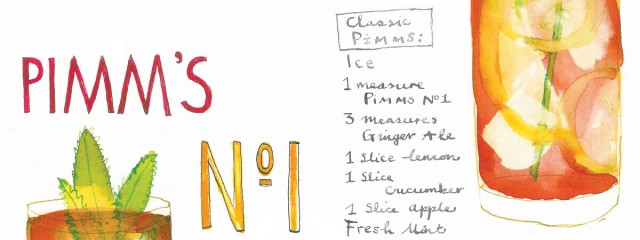 PIMM'S
Nº1
Classic
Pimms:
Ice
1 measure
Pimms Nº1
3 measures
Ginger Ale
1 slice lemon
1 Slice
cucumber
1 Slice apple
Fresh Mint